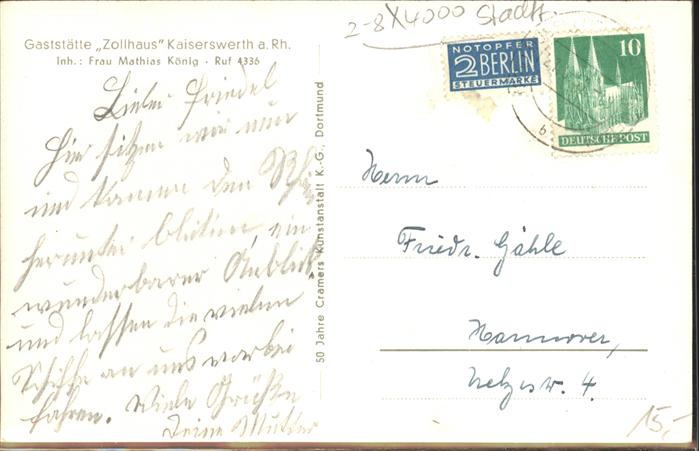 Gaststätte „Zollhaus" Kaiserswerth a. Rh.
Inh.: Frau Mathias König · Ruf 4336
Lieber Friedel
hier sitzen wir nun
und können den Rhein
herunter blicken, ein
wunderbarer Anblick
und lassen die vielen
Schiffe an uns vorbei
fahren. Viele Grüße
Deine Mutter
50 Jahre Cramers Kunstanstalt K.-G., Dortmund
2-8X4000 Stadt
NOTOPFER
2 BERLIN
STEUERMARKE
10
DEUTSCHE POST
Herrn
Friedr. Gähle
Hannover,
4.
15,-